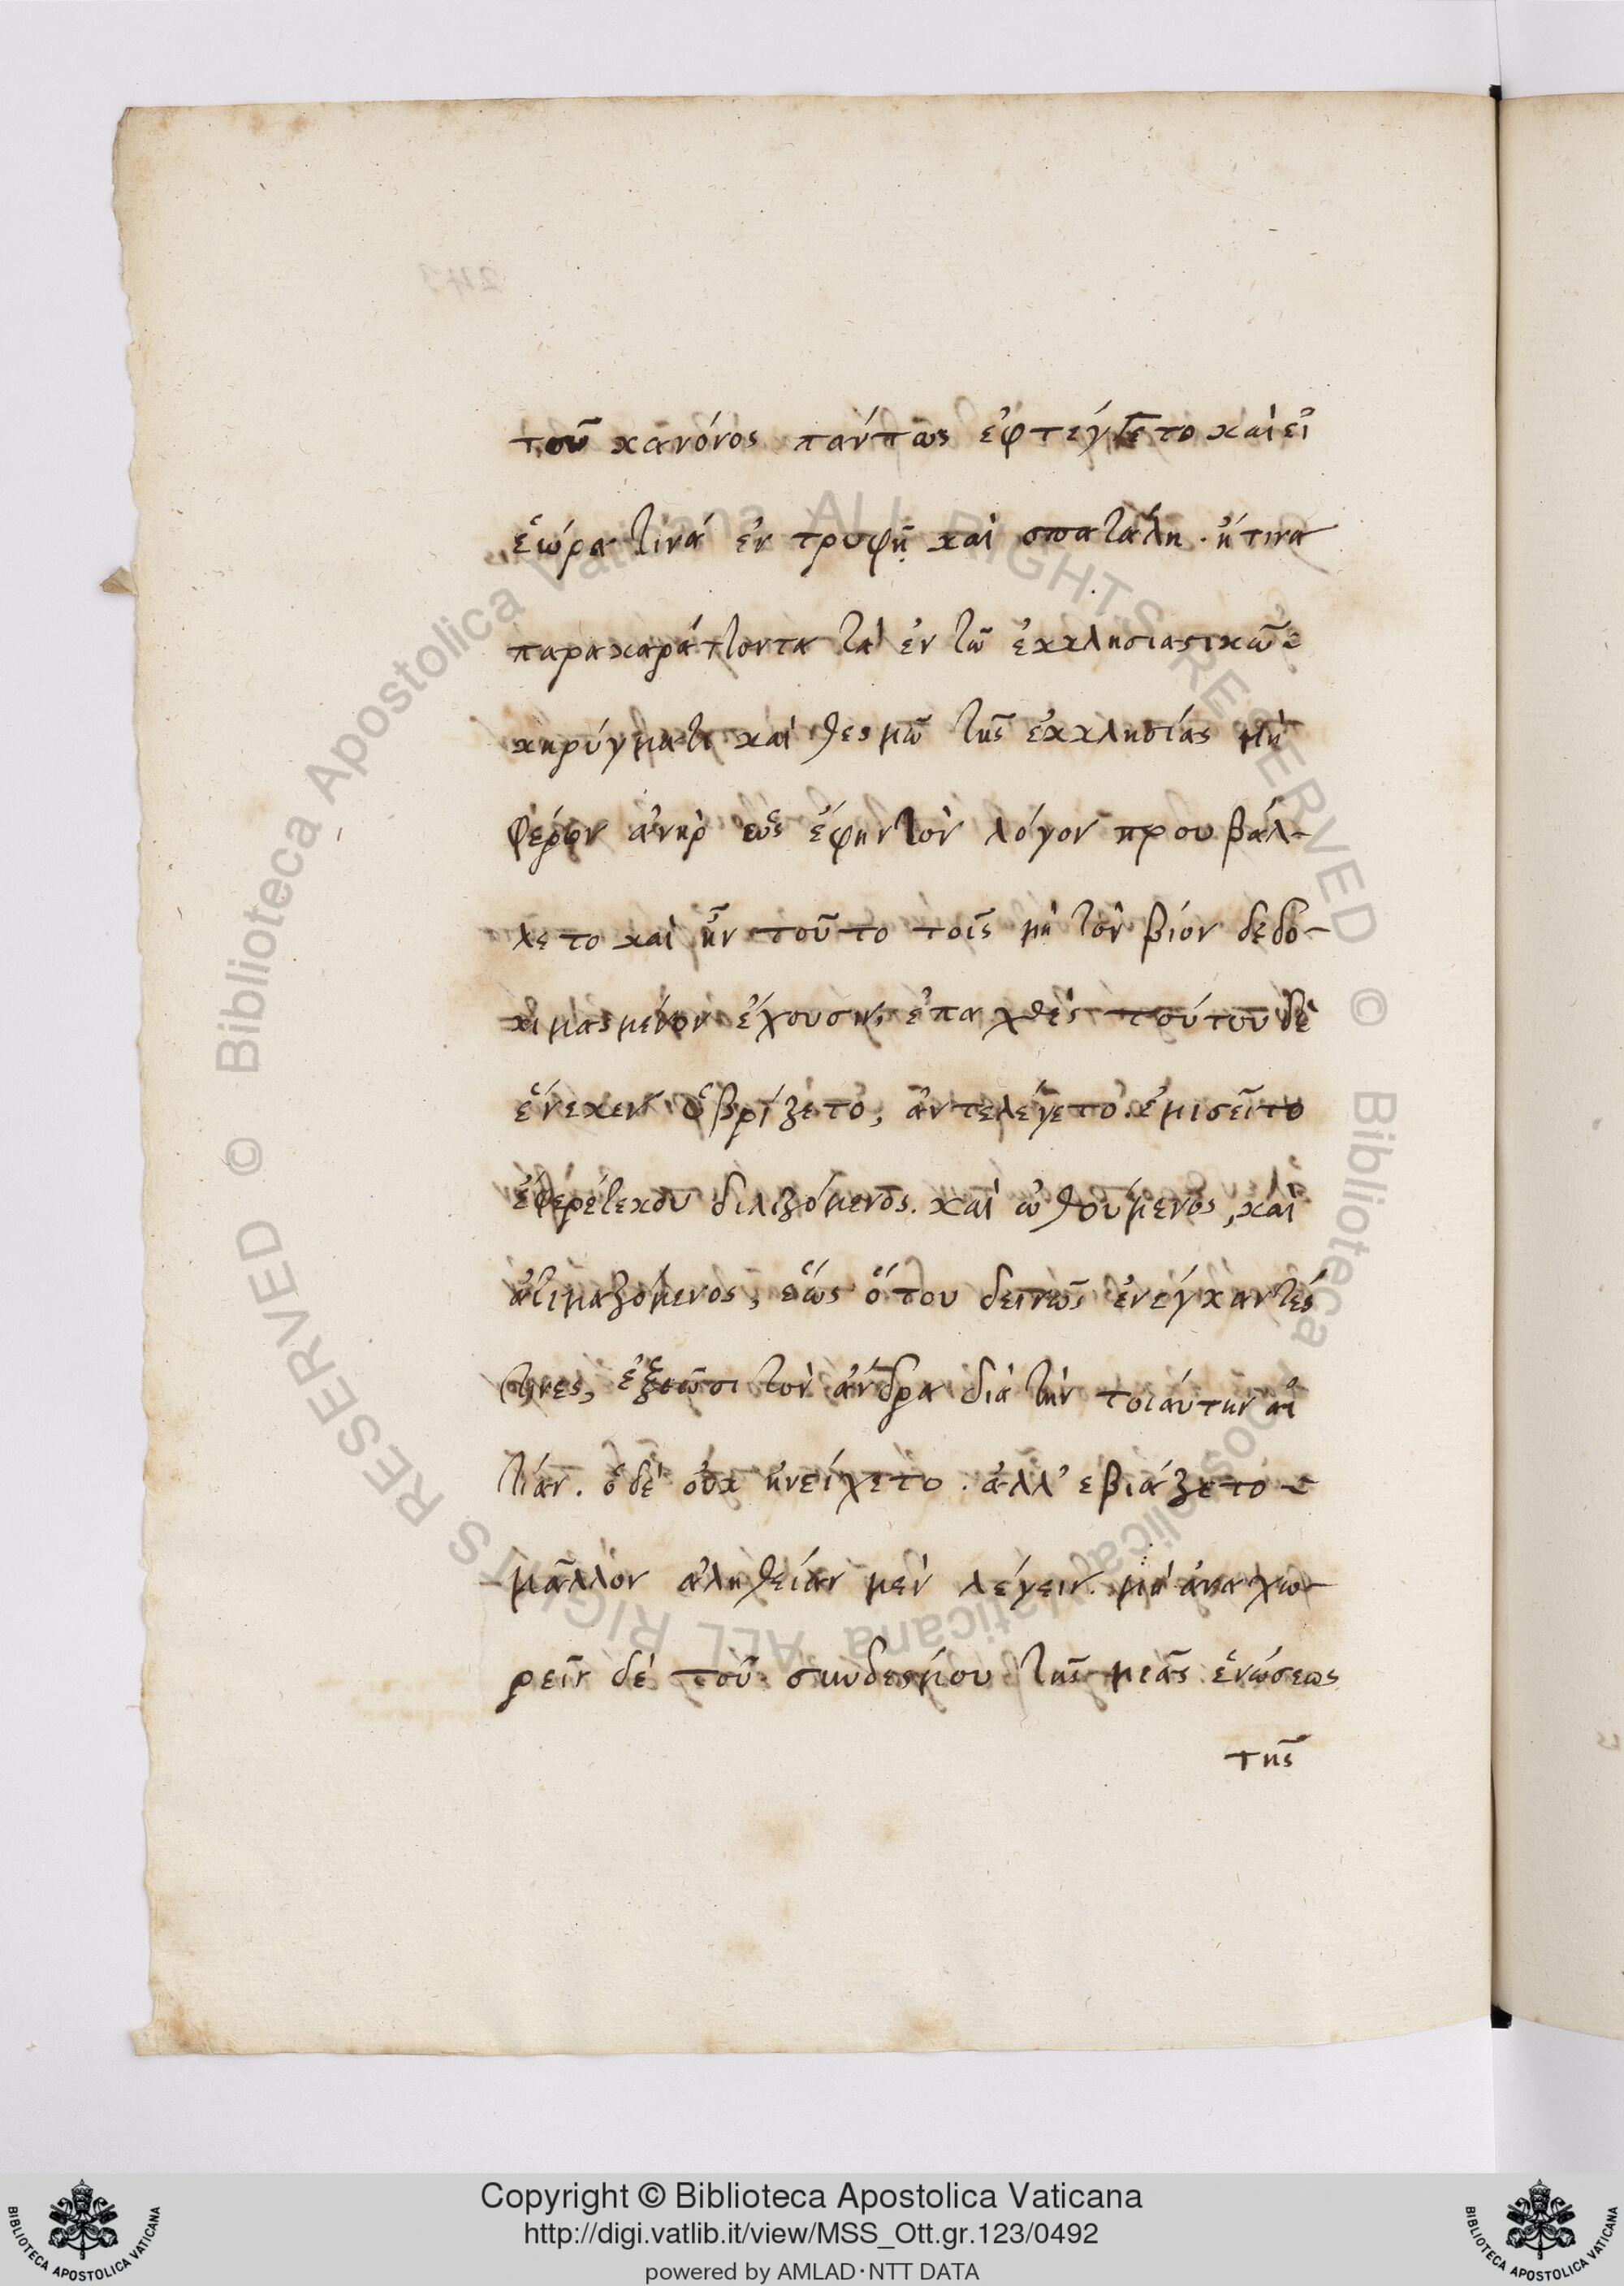 τοῦ κανόνος πάντως ἐφτέγγετο καὶ εἰ
ἑώρα τινά ἐν τρυφῇ καὶ σπατάλη. ἤ τινα
παραχαράττοντα τὰ ἐν τῶ ἐκκλησιαστικῶ
κηρύγματι καὶ θεσμῶ τῆς ἐκκλησίας μὴ
φέρον ἀνὴρ ὡς ἔφην τὸν λόγον προυβάλ-
λετο καὶ ἦν τοῦτο τοῖς μὴ τὸν βίον δεδο-
κιμασμένον ἔχουσιν, ἐπαχθές τούτου δὲ
ἕνεκεν ὑβρίζετο, ἀντελέγετο. ἐμισεῖτο
καὶ ὠθούμενος, καὶ
ἀτιμαζόμενος, ἕως ὅτου δεινῶς ἐνέγκαντές
τινες, ἐξεῶσι τὸν ἄνδρα διὰ τὴν τοιάυτην αἰ
τίαν. ὁ δὲ οὐκ ἠνείχετο. ἀλλ' εβιάζετο
μᾶλλον ἀληθείαν μὲν λέγειν. μὴ ἀναχω-
ρεῖν δὲ τοῦ συνδεσμου τῆς μιᾶς ἑνώσεως
τῆς
Copyright © Biblioteca Apostolica Vaticana
http://digi.vatlib.it/view/MSS_Ott.gr.123/0492
powered by AMLAD·NTT DATA
BIBLIOTECA APOSTOLICA VATICANA
BIBLIOTECA APOSTOLICA VATICANA
© Biblioteca Apostolica Vaticana ALL RIGHTS RESERVED © Biblioteca Apostolica Vaticana ALL RIGHTS RESERVED